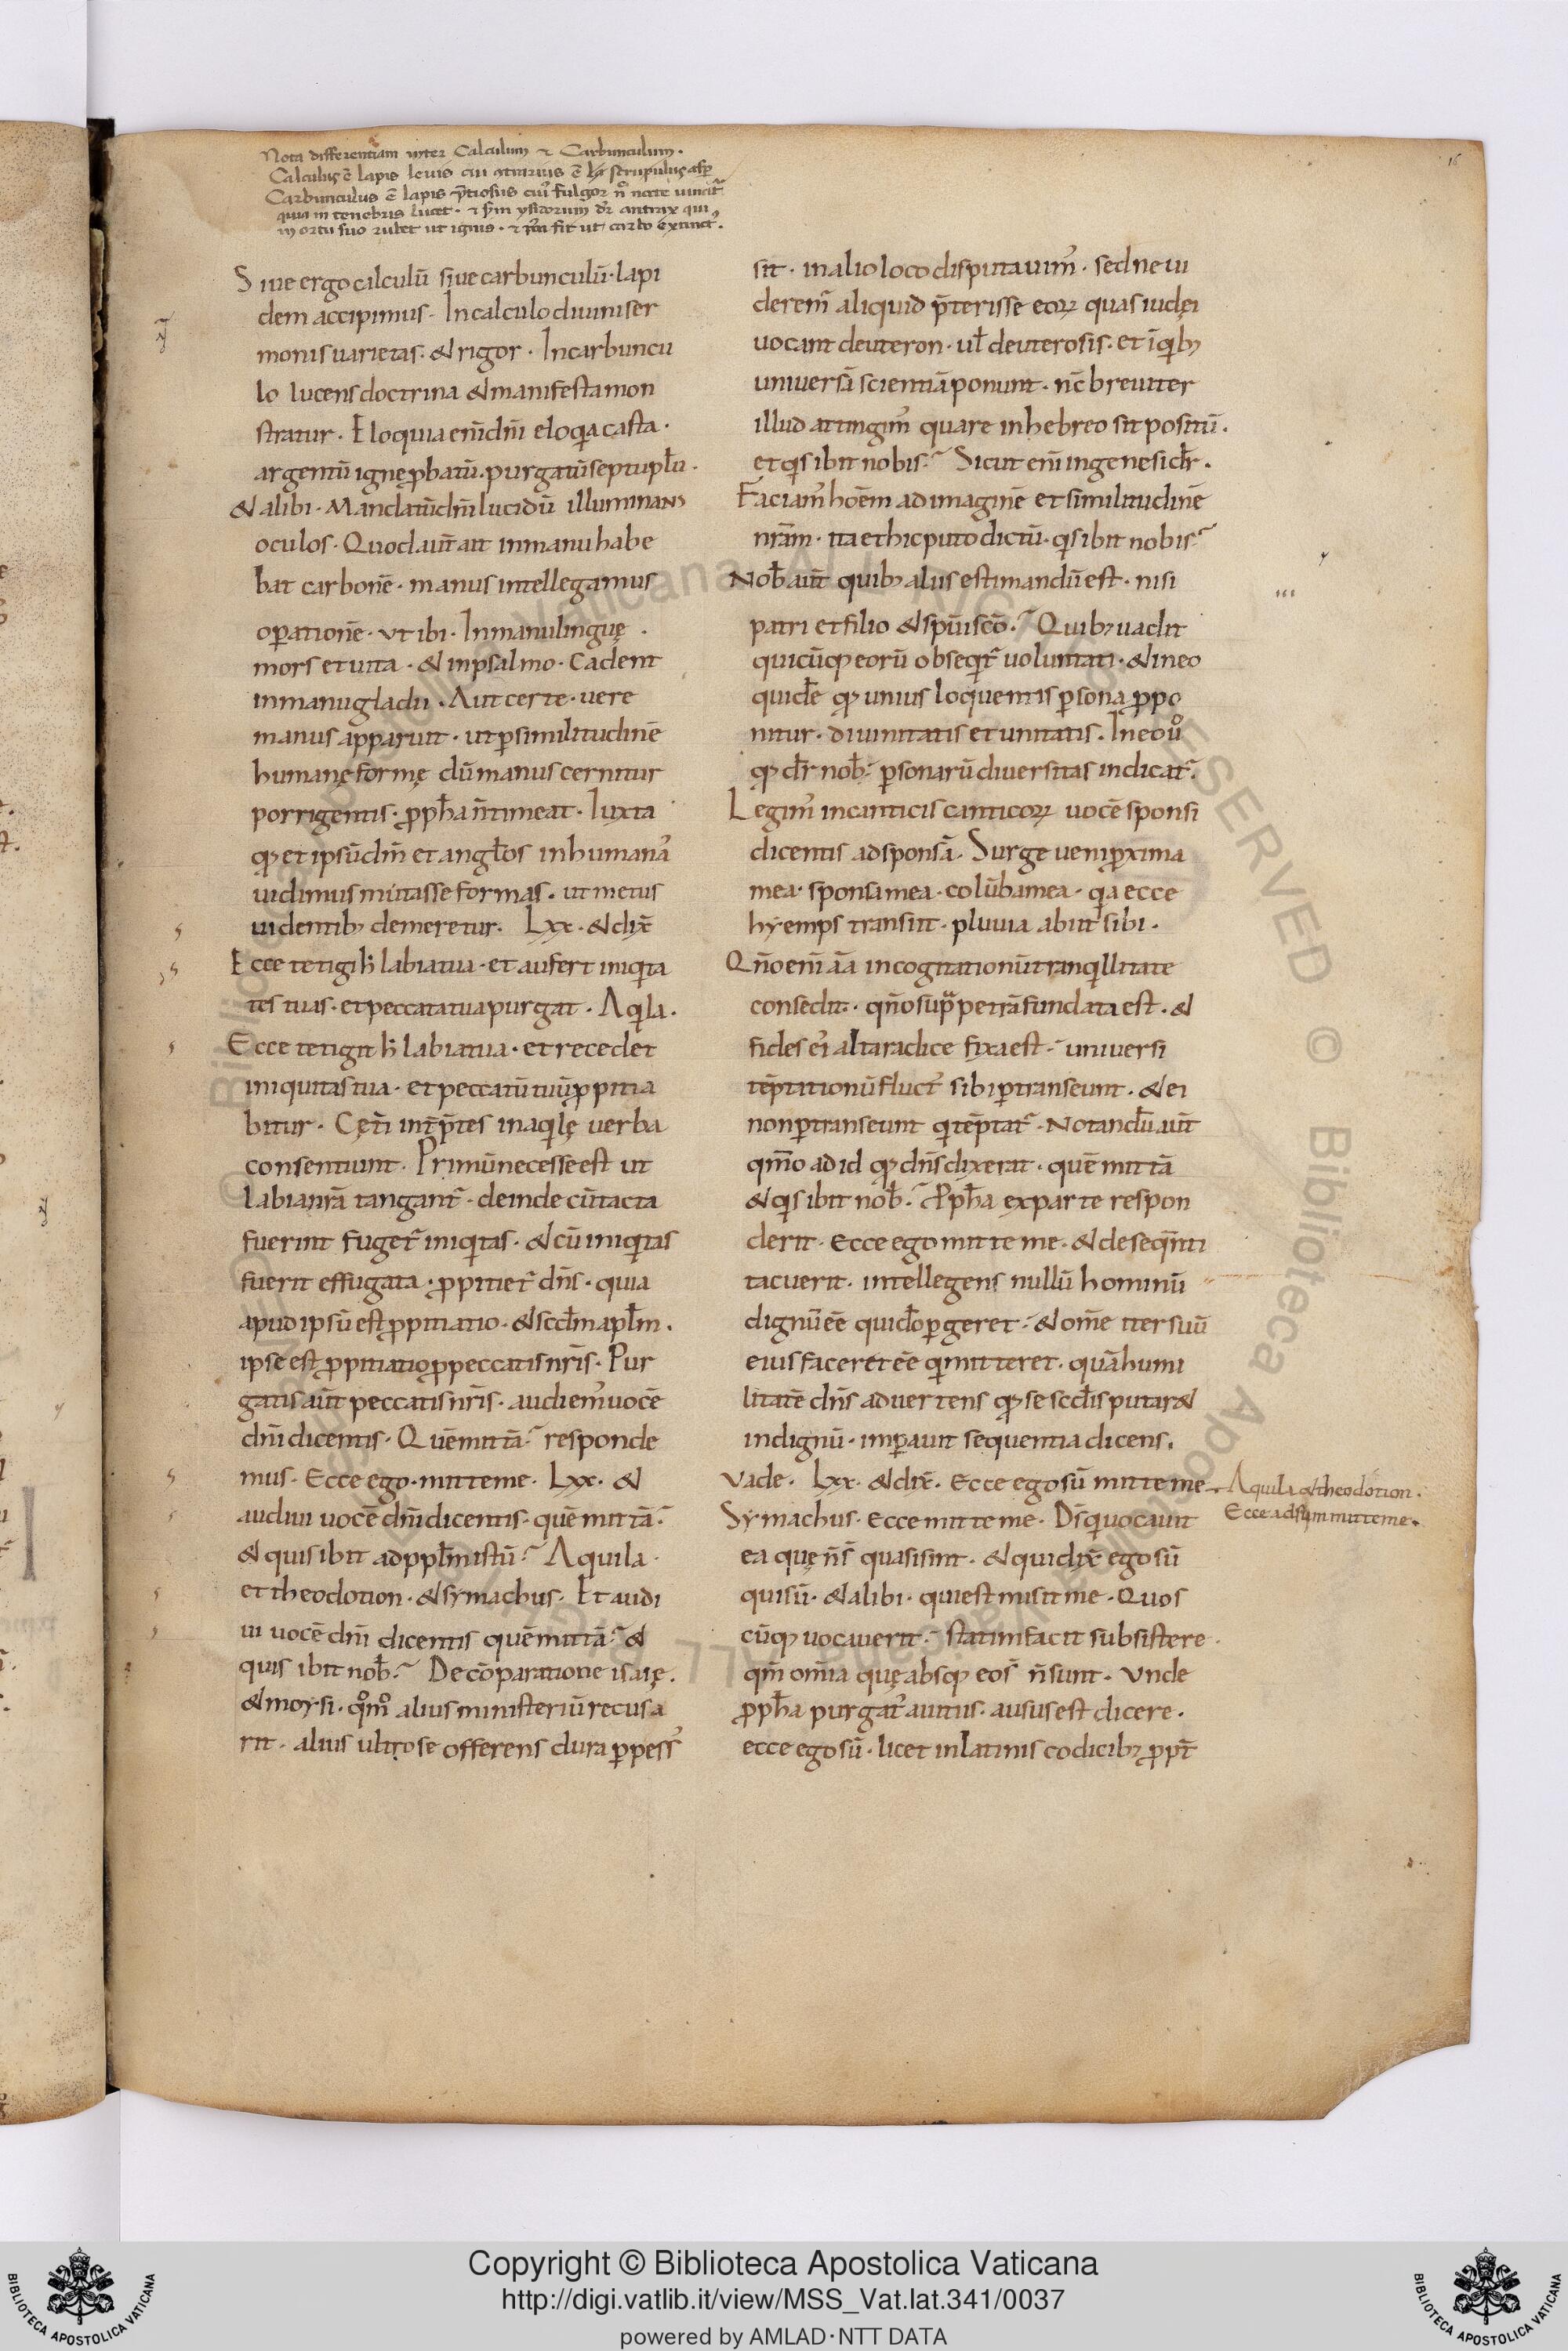 16
Nota differentiam inter Calculum ⁊ Carbunculum.
Calculus ē lapis leuis cui ↄtrarius ē scrupulus asp̄
Carbunculus ē lapis p̄tiosus cui᾿ fulgor nͦ nocte uincit᷑
quia in tenebris lucet · ⁊ sm ysidorum dr̄ antrax qui
in ortu suo rubet ut ignis · ⁊ fit ut carbo extinct᾿.
Siue ergo calculū siue carbunculū · lapi
dem accipimus · In calculo diuini ser
monis uarietas · & rigor · In carbuncu
lo lucens doctrina & manifesta mon
stratur · Eloquia eni᷑ dn̄i eloqia casta ·
argentū igne ꝓbatū · purgatū septuplū ·
& alibi · Mandatū dn̄i lucidū illuminans
oculos · Quod aut̄ ait in manu habe
bat carbonē · manus intellegamus
oꝑationē · ut ibi · In manu linguę ·
mors et uita · & in psalmo · Cadent
in manu gladii · Aut certe · uere
manus apparuit · ut ꝑ similitudinē
humanę formę dū manus cernitur
porrigentis · ꝓph̄a n̄ timeat · Iuxta
qđ et ipsū dn̄m et angl̄os in humana᾿
uidimus mutasse formas · ut metus
uidentibꝫ demeretur · Lxx · & dix̄
Ecce tetigit h̄ labia tua · et aufert iniqita
tes tuas · et peccata tua purgat · Aqila ·
Ecce tetigit h̄ labia tua · et recedet
iniquitas tua · et peccatū tuū ꝓpitia
bitur · Cęt̄i int̄p̄tes in aqilę uerba
consentiunt · Primū necesse est ut
labia nr̄a tangant᷑ · deinde cū tacta
fuerint fuget᷑ iniqitas · & cū iniqitas
fuerit effugata · ꝓpitiet᷑ dn̄s · quia
apud ipsū est ꝓpitiatio · & scdm̄ apl̄m ·
ipse est ꝓpitiatio ꝓ peccatis nr̄is · Pur
gatis aut̄ peccatis nr̄is · audiem᾿ uocē
dn̄i dicentis · Quē mittā? responde
mus · Ecce ego · mitte me · Lxx · &
audiui uocē dn̄i dicentis · quē mittā?
& quis ibit ad ppl̄m istū? Aquila ·
et theodotion · & symachus · Et audi
ui uocē dn̄i dicentis quē mittā? &
quis ibit nob̄? De cōparatione isaię ·
& moysi · qͦmͦ alius ministeriū recusa
rit · alius ultro se offerens dura ꝑpess᾿
sit · in alio loco disputauim᾿ · sed ne ui
derem᾿ aliquid p̄terisse eoꝝ quas iudęi
uocant deuteron · ul̄ deuterosis · et ī qibꝫ
uniuersā scientiā ponunt · nc̄ breuiter
illud attingim᾿ quare in hebreo sit positū ·
et qis ibit nobis? Sicut eni᷑ in genesi dr̄ ·
Faciam᾿ hoēm ad imaginē et similitudinē
nr̄am · ita et hic puto dictū · qis ibit nobis?
Nob̄ aut̄ quibꝫ aliis estimandū est · nisi
patri et filio & spūi scō? Quibꝫ uadit
quicūqꝫ eorū obseqit᷑ uoluntati · & in eo
quidē qđ unius loquentis ꝑsona ꝓpo
nitur · diuinitatis et unitatis · In eo uͦ
qđ dr̄ nob̄? ꝑsonarū diuersitas indicat᷑ ·
Legim᾿ in canticis canticoꝝ uocē sponsi
dicentis ad sponsā · Surge ueni ꝓxima
mea · sponsa mea · colūba mea · qia ecce
hyemps transiit · pluuia abiit sibi ·
Qn̄o eni᷑ āa in cogitationū tranqillitate
consedit · qn̄o supra petrā fundata est · &
fides ei᾿ alta radice fixa est · uniuersi
tēptationū fluct᾿ sibi ꝑtranseunt · & ei
non ꝑtranseunt qi tēptat᷑ · Notandū aut̄
qm̄o ad id qđ dn̄s dixerat · quē mittā
& qis ibit nob̄? Ꝓph̄a ex parte respon
derit · Ecce ego mitte me · & de seqn̄ti
tacuerit · intellegens nullū hominū
dignū ēe qui dō ꝑgeret · & om̄e iter suū
eius faceret ēe qi mitteret · quā humi
litatē dn̄s aduertens qđ se scdis putar&
indignū · imꝑauit sequentia dicens ·
Vade · Lxx · & dix̄ · Ecce ego sū mitte me
Aquila & theodotion ·
Ecce adsum mitte me ·
Symachus · Ecce mitte me · Ds̄ qi uocauit
ea quę n̄ s̄ quasi sint · & qui dix̄ ego sū
qui sū · & alibi · qui est misit me · Quos
cūqꝫ uocauerit · statim facit subsistere ·
qm̄ om̄ia quę absqꝫ eo s̄ n̄ sunt · Vnde
ꝓph̄a purgat᾿ a uitiis · ausus est dicere ·
ecce ego sū · licet in latinis codicibꝫ ꝓpt̄
Copyright © Biblioteca Apostolica Vaticana
http://digi.vatlib.it/view/MSS_Vat.lat.341/0037
powered by AMLAD·NTT DATA
BIBLIOTECA APOSTOLICA VATICANA
BIBLIOTECA APOSTOLICA VATICANA